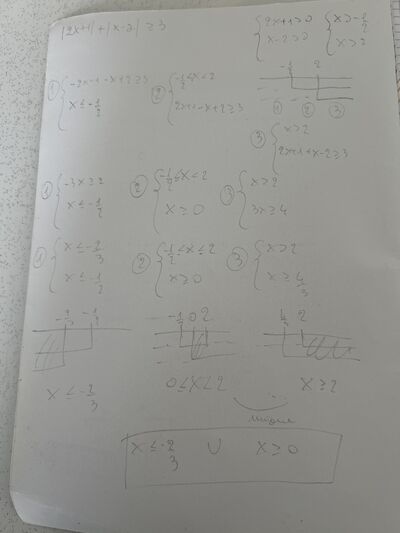 |2x+1|+|x-2| ≥ 3
{ 2x+1>0
x-2>0
{ x>-1/2
x>2
-1/2 2
① ② ③
① { -2x-1-x+2≥3
x≤-1/2
② { -1/2<x<2
2x+1-x+2≥3
③ { x>2
2x+1+x-2≥3
① { -3x≥2
x≤-1/2
② { -1/2≤x<2
x≥0
③ { x>2
3x≥4
① { x≤-2/3
x≤-1/2
② { -1/2<x≤2
x≥0
③ { x>2
x≥4/3
-2/3 -1/2
-1/2 0 2
4/3 2
x≤-2/3
0≤x<2
x≥2
x≤-2/3 ∪ x≥0